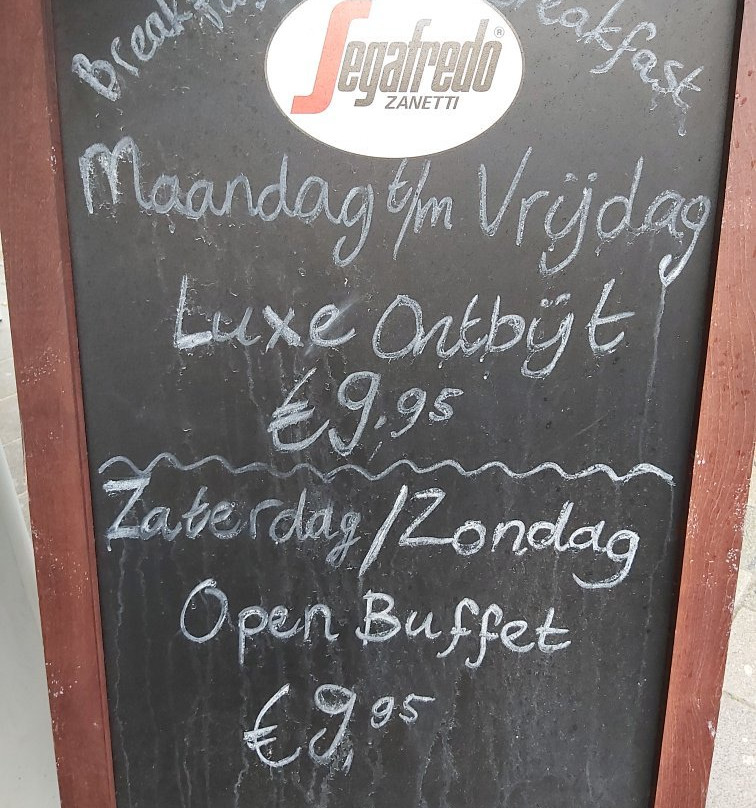 Breakfast
Segafredo®
ZANETTI
Breakfast
Maandag t/m Vrÿdag
Luxe Ontbÿt
€9.95
Zaterdag/Zondag
Open Buffet
€9,95